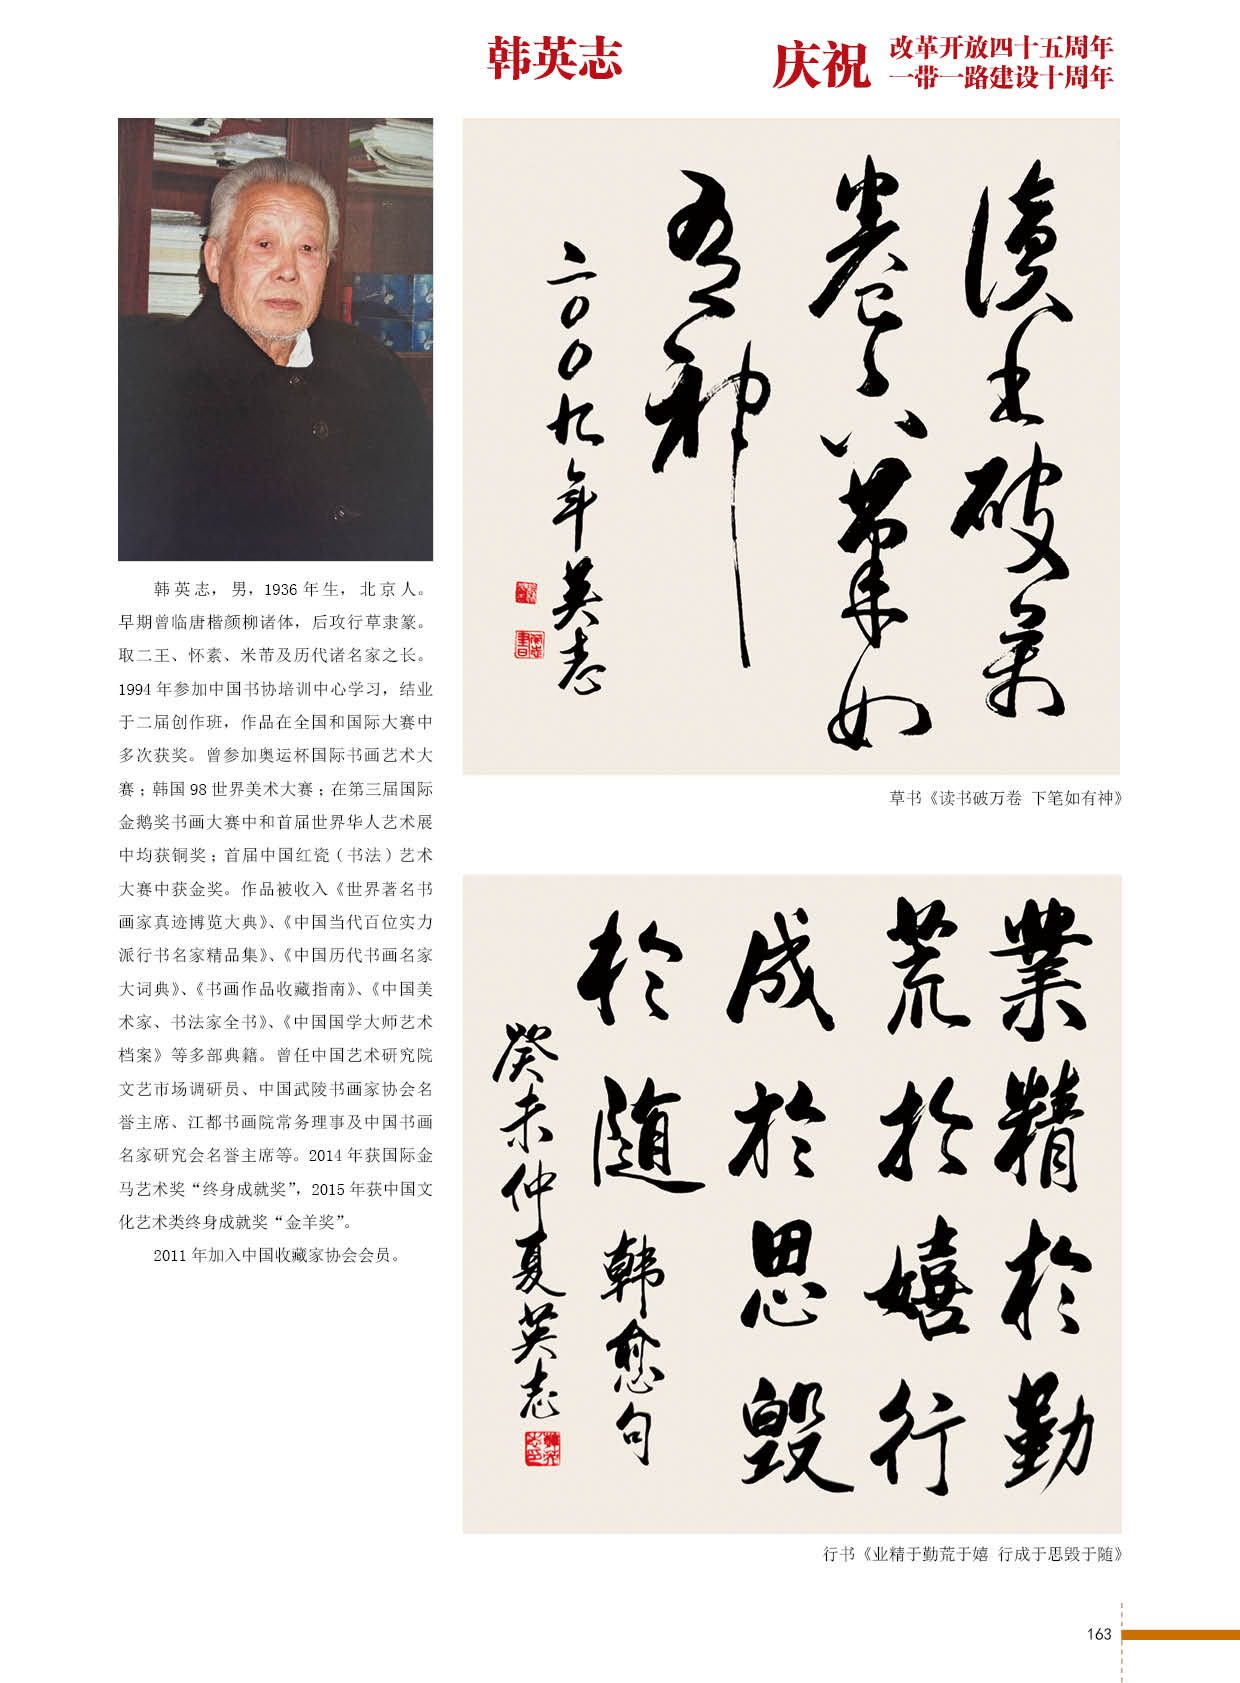 韩英志
庆祝
改革开放四十五周年
一带一路建设十周年
韩英志，男，1936 年生，北京人。
早期曾临唐楷颜柳诸体，后攻行草隶篆。
取二王、怀素、米芾及历代诸名家之长。
1994 年参加中国书协培训中心学习，结业
于二届创作班，作品在全国和国际大赛中
多次获奖。曾参加奥运杯国际书画艺术大
赛；韩国 98 世界美术大赛；在第三届国际
金鹅奖书画大赛中和首届世界华人艺术展
中均获铜奖；首届中国红瓷（书法）艺术
大赛中获金奖。作品被收入《世界著名书
画家真迹博览大典》、《中国当代百位实力
派行书名家精品集》、《中国历代书画名家
大词典》、《书画作品收藏指南》、《中国美
术家、书法家全书》、《中国国学大师艺术
档案》等多部典籍。曾任中国艺术研究院
文艺市场调研员、中国武陵书画家协会名
誉主席、江都书画院常务理事及中国书画
名家研究会名誉主席等。2014 年获国际金
马艺术奖“终身成就奖”，2015 年获中国文
化艺术类终身成就奖“金羊奖”。
2011 年加入中国收藏家协会会员。
读书破万
卷下笔如
有神
二〇〇九年英志
草书《读书破万卷 下笔如有神》
業精於勤
荒於嬉行
成於思毁
於随 韩愈句
癸未仲夏英志
行书《业精于勤荒于嬉 行成于思毁于随》
163